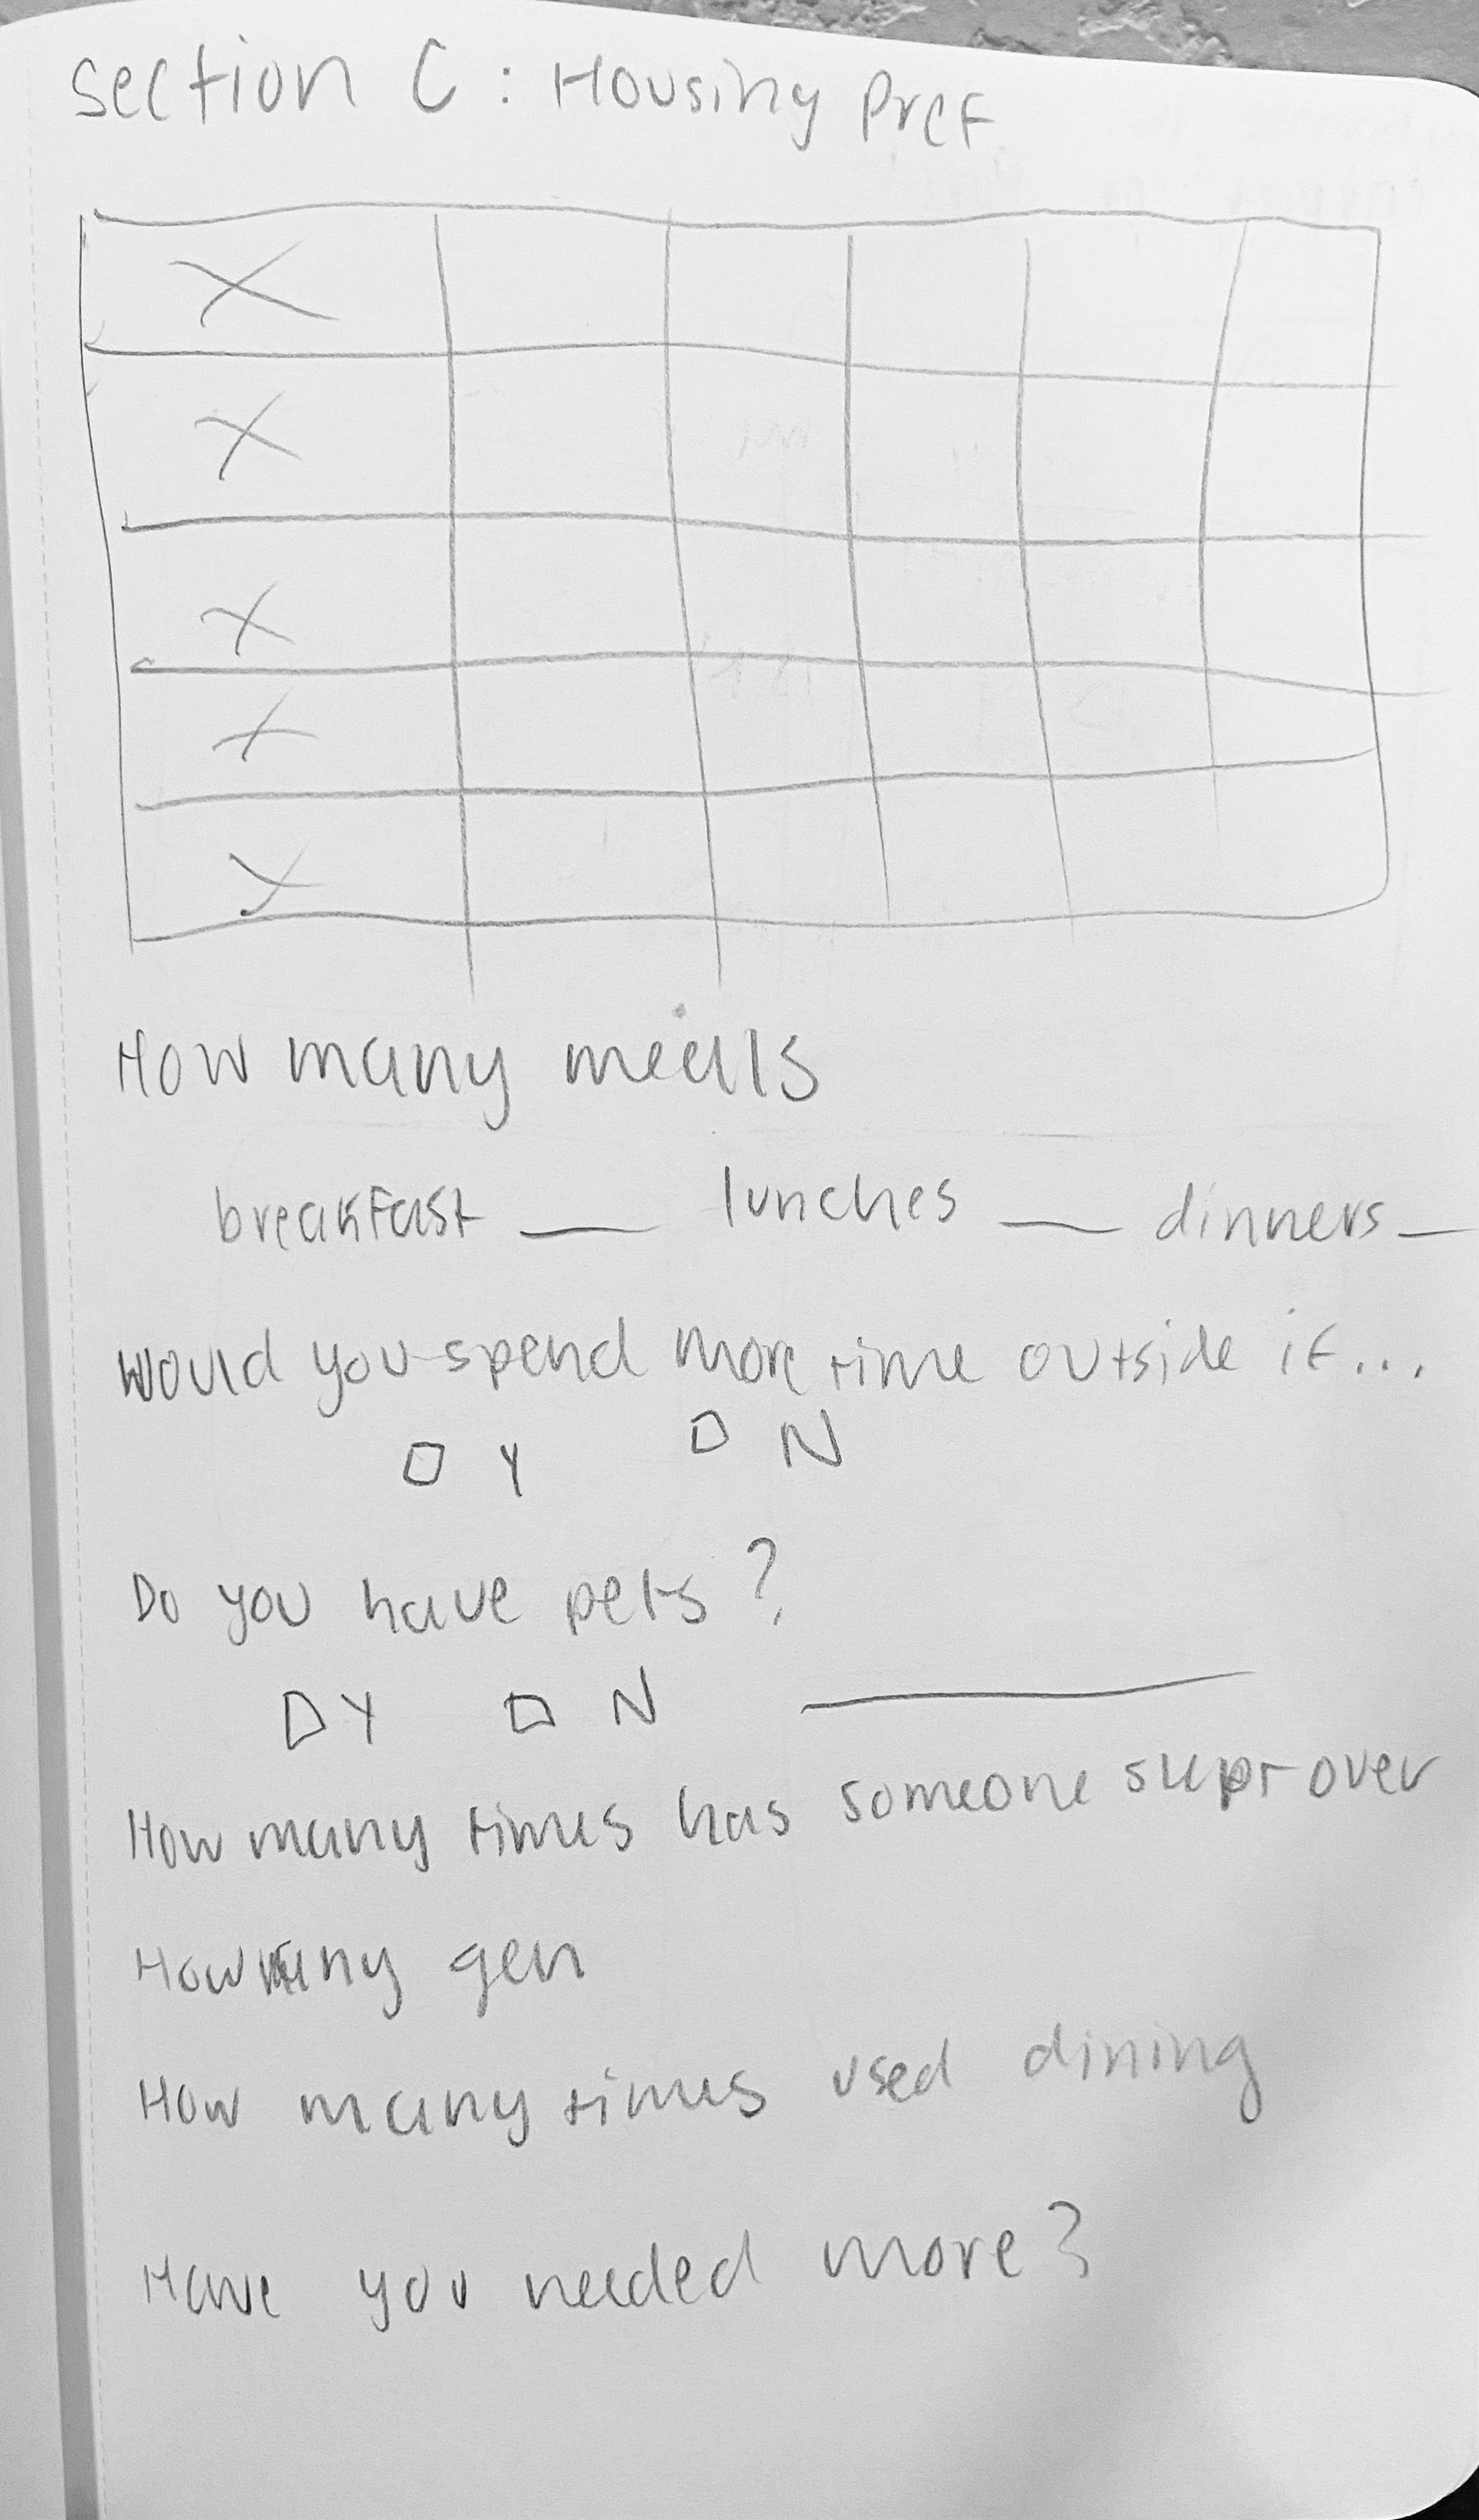 Section C: Housing Pref
X
X
X
X
X
How many meals
breakfast __ lunches __ dinners __
Would you spend more time outside if...
☐ Y ☐ N
Do you have pets?
☐ Y ☐ N ______
How many times has someone slept over
How many gen
How many times used dining
Have you needed more?